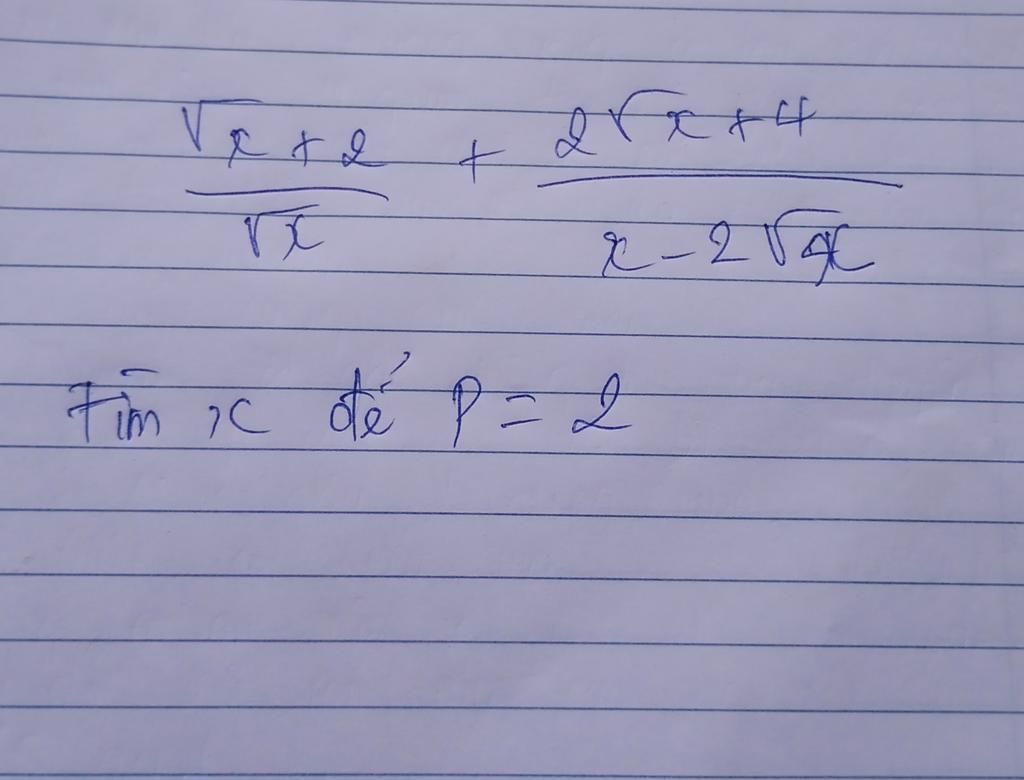 \frac{\sqrt{x}+2}{\sqrt{x}} + \frac{2\sqrt{x}+4}{x-2\sqrt{x}}
Tìm x để P = 2